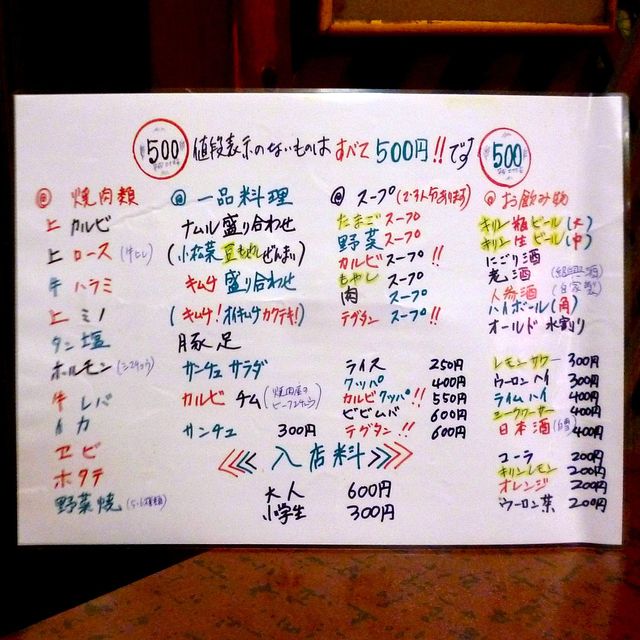 500 値段表示のないものは すべて 500円!! です 500
@ 焼肉類
上 カルビ
上 ロース (牛ヒレ)
牛 ハラミ
上 ミノ
タン塩
ホルモン
牛 レバ
イカ
エビ
ホタテ
野菜焼
@ 一品料理
ナムル盛り合わせ
(小松菜 豆もやし ぜんまい)
キムチ 盛り合わせ
(キムチ! オイキムチ カクテキ!)
豚足
サンチュ サラダ
カルビ チム
サンチュ 300円
@ スープ
たまご スープ
野菜 スープ
カルビ スープ!!
もやし スープ
肉 スープ
テグタン スープ!!
ライス 250円
クッパ 400円
カルビクッパ!! 550円
ビビムパ 600円
テグタン!! 600円
@ お飲み物
キリン 瓶ビール(大)
キリン 生ビール(中)
にごり酒
老酒 (紹興酒)
人参酒 (自家製)
ハイボール(角)
オールド 水割り
レモンサワー 300円
ウーロンハイ 300円
ライムハイ 400円
シークワーサー 400円
日本酒 400円
コーラ 200円
キリンレモン 200円
オレンジ 200円
ウーロン茶 200円
入店料
大人 600円
小学生 300円